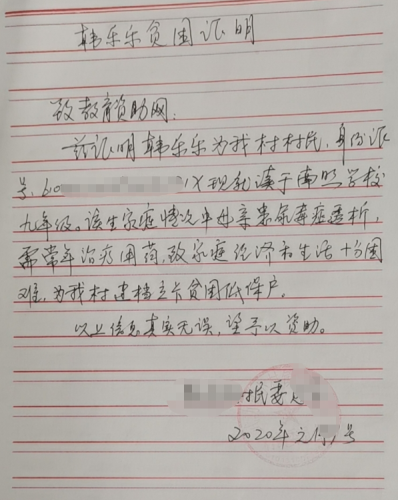 韩乐乐贫困证明
致教育资助网:
兹证明韩乐乐为我村村民,身份证
号:60 1X现就读于南照学校
九年级。该生家庭情况中母亲患尿毒症透析,
需常年治疗用药,致家庭经济和生活十分困
难,为我村建档立卡贫困低保户。
以上信息真实无误,望予以资助。
村民委
2020年 号